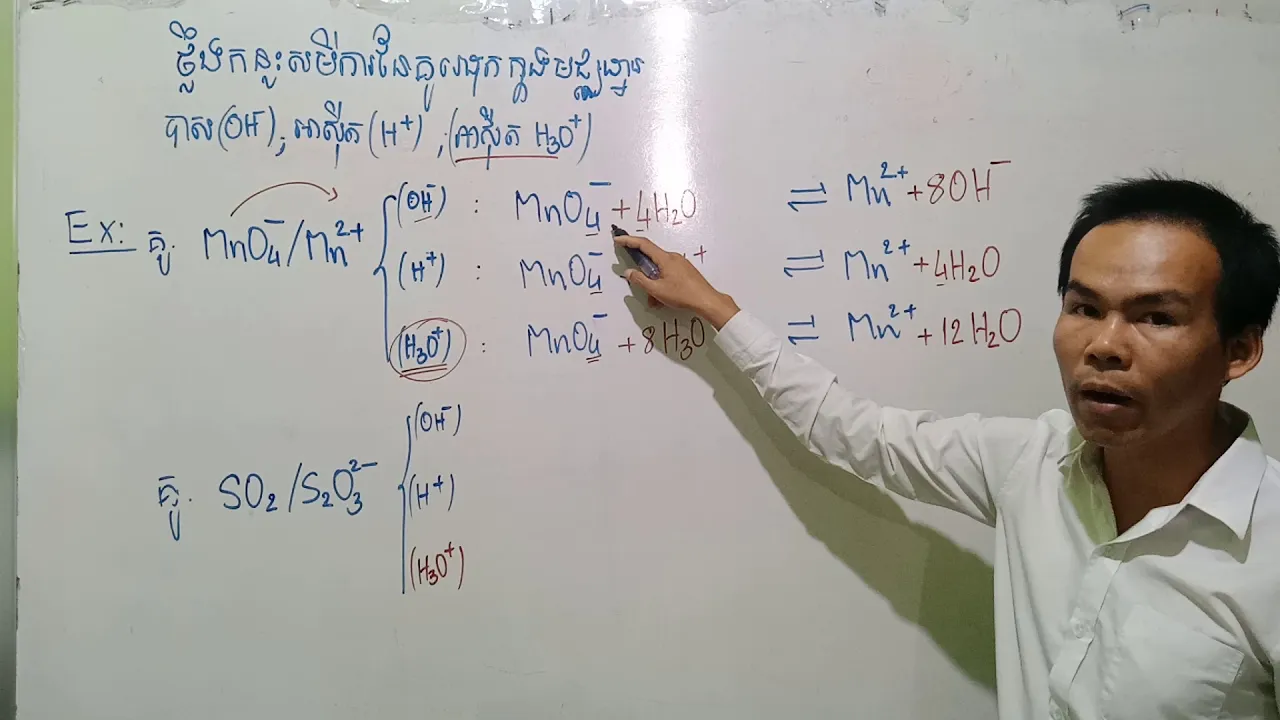 ថ្លឹងកន្លះសមីការនៃគូរេដុកក្នុងមជ្ឈដ្ឋាន
បាស (OH⁻), អាស៊ីត (H⁺), (អាស៊ីត H₃O⁺)
Ex: គូ. MnO₄⁻/Mn²⁺
(OH⁻) : MnO₄⁻ + 4H₂O ⇌ Mn²⁺ + 8OH⁻
(H⁺) : MnO₄⁻ ⁺ ⇌ Mn²⁺ + 4H₂O
(H₃O⁺) : MnO₄⁻ + 8H₃O ⇌ Mn²⁺ + 12H₂O
គូ. SO₂/S₂O₃²⁻
(OH⁻)
(H⁺)
(H₃O⁺)